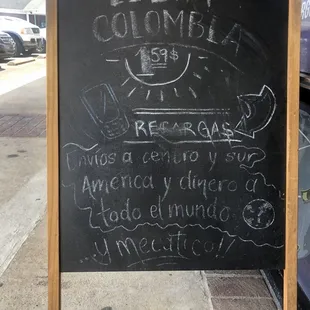 COLOMBIA
1.59$
RECARGAS
Envíos a centro y sur
America y dinero a
todo el mundo
y mecatico!!